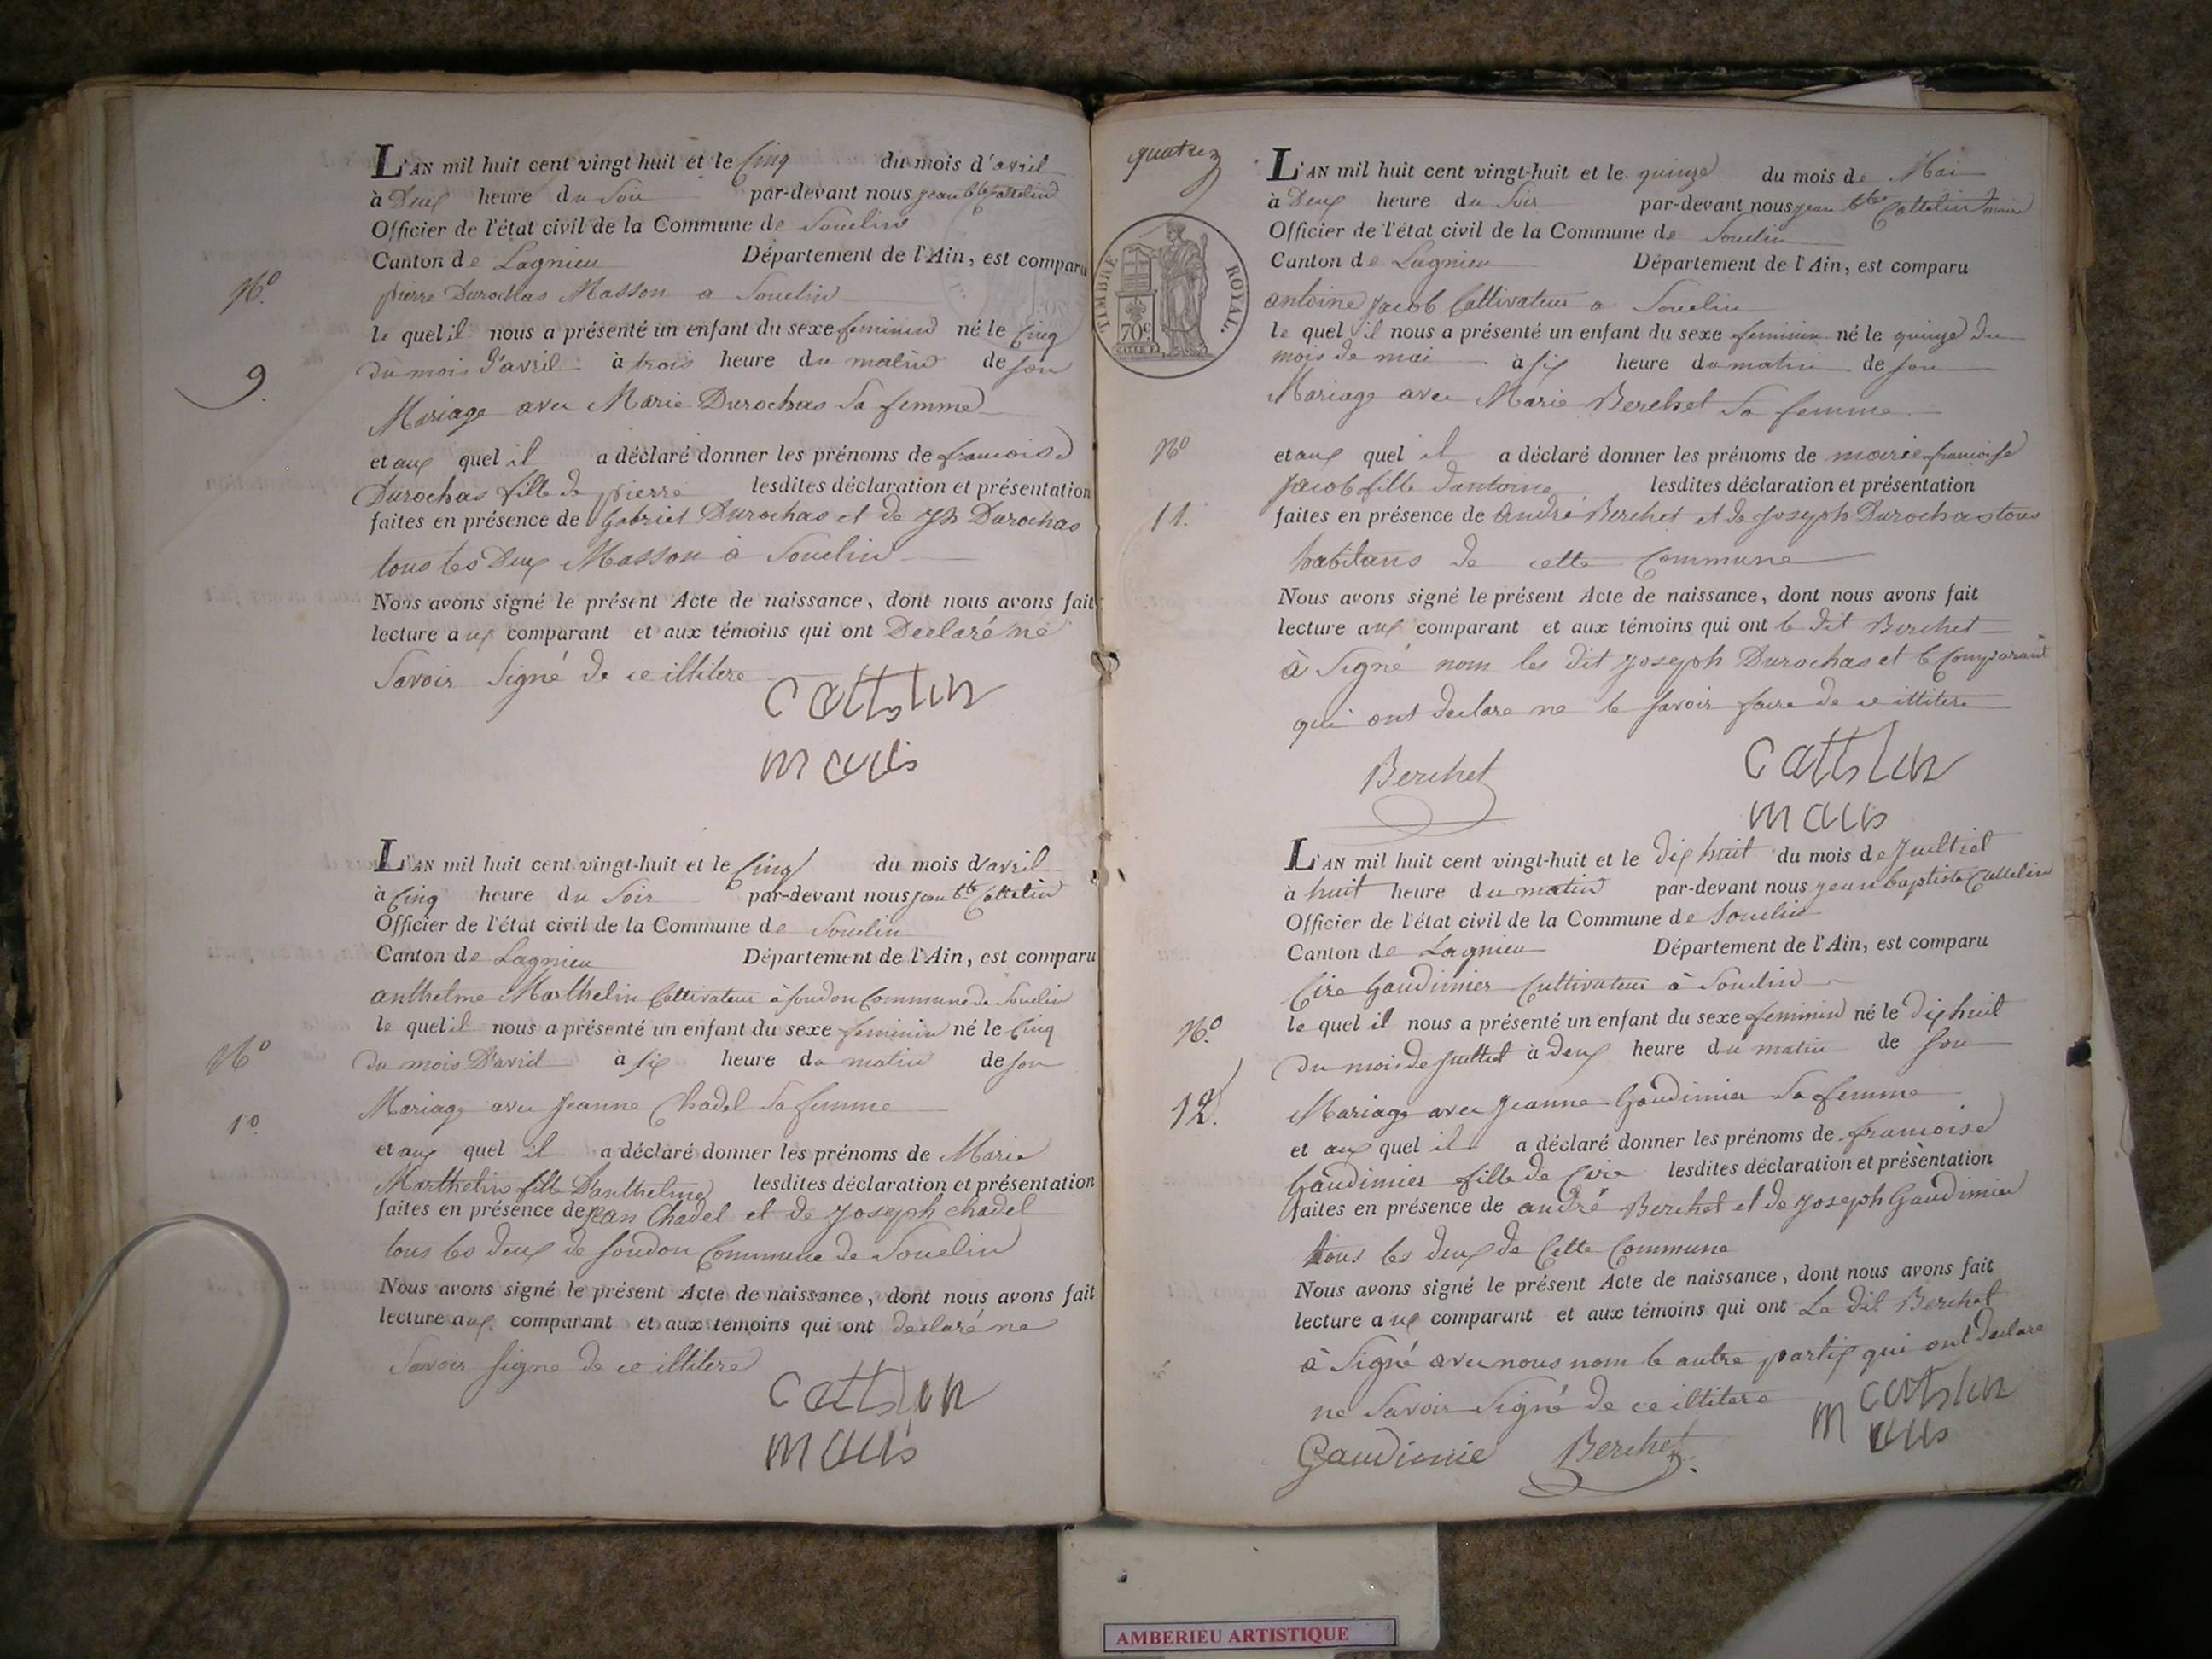 L'AN mil huit cent vingt huit et le Cinq du mois d'avril
à Deux heure du Soir par-devant nous jean bte Cattelin
Officier de l'état civil de la Commune de Souclin
Canton de Lagnieu Département de l'Ain, est comparu
pierre Durochas Masson a Souclin
le quel il nous a présenté un enfant du sexe feminin né le Cinq
du mois d'avril à trois heure du matin de son
Mariage avec Marie Durochas Sa femme
et aux quel il a déclaré donner les prénoms de francoise
Durochas fille de pierre lesdites déclaration et présentation
faites en présence de Gabriel Durochas et de Durochas
tous les Deux Masson à Souclin
Nous avons signé le présent Acte de naissance, dont nous avons fait
lecture aux comparant et aux témoins qui ont Declaré ne
Savoir Signé de ce illitere
Cattelin
N°
9.
L'AN mil huit cent vingt-huit et le Cinq du mois d'avril
à Cinq heure du Soir par-devant nous jean bte Cattelin
Officier de l'état civil de la Commune de Souclin
Canton de Lagnieu Département de l'Ain, est comparu
anthelme Marthelin Cultivateur à soudon Commune de Souclin
le quel il nous a présenté un enfant du sexe feminin né le Cinq
du mois D'avril à six heure du matin de son
Mariage avec jeanne Chadel Sa femme
et aux quel il a déclaré donner les prénoms de Marie
Marthelin fille D'anthelme lesdites déclaration et présentation
faites en présence de jean Chadel et de joseph chadel
tous les deux de soudon Commune de Souclin
Nous avons signé le présent Acte de naissance, dont nous avons fait
lecture aux comparant et aux témoins qui ont declaré ne
Savoir signe de ce illitere
Cattelin
N°
10.
TIMBRE ROYAL.
70c.
L'AN mil huit cent vingt-huit et le quinze du mois de Mai
à Deux heure du Soir par-devant nous jean bte Cattelin maire
Officier de l'état civil de la Commune de Souclin
Canton de Lagnieu Département de l'Ain, est comparu
antoine jacob Cultivateur a Souclin
le quel il nous a présenté un enfant du sexe feminin né le quinze du
mois de mai à six heure du matin de son
Mariage avec Marie Berchet Sa femme
et aux quel il a déclaré donner les prénoms de marie francoise
jacob fille dantoine lesdites déclaration et présentation
faites en présence de andré Berchet et de joseph Durochas tous
habitans de cette Commune
Nous avons signé le présent Acte de naissance, dont nous avons fait
lecture aux comparant et aux témoins qui ont le dit Berchet
à Signé nom les dit joseph Durochas et le Comparant
qui ont declare ne le savoir faire de ce illitere
Berchet Cattelin
N°
11.
L'AN mil huit cent vingt-huit et le dix huit du mois de juillet
à huit heure du matin par-devant nous jean baptiste Cattelin
Officier de l'état civil de la Commune de Souclin
Canton de Lagnieu Département de l'Ain, est comparu
Cire Gaudimier Cultivateur à Souclin
le quel il nous a présenté un enfant du sexe feminin né le dix huit
du mois de juillet à deux heure du matin de son
Mariage avec jeanne Gaudimier Sa femme
et aux quel il a déclaré donner les prénoms de francoise
Gaudimier fille de Cire lesdites déclaration et présentation
faites en présence de andré Berchet et de joseph Gaudimier
tous les deux de Cette Commune
Nous avons signé le présent Acte de naissance, dont nous avons fait
lecture aux comparant et aux témoins qui ont Le dit Berchet
à Signé avec nous nom le autre partis qui ont declare
ne Savoir Signé de ce illitere
Gaudimie Berchet Cattelin
N°
12.
AMBERIEU ARTISTIQUE